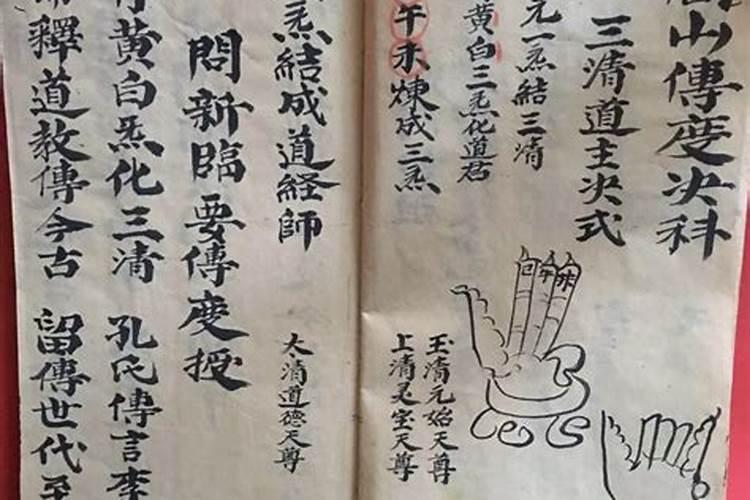 山傳度决科
三清道主决式
元一炁結三清
黄白三炁化道君
午未煉成三炁
巳午未
玉清元始天尊
上清灵宝天尊
炁結成道経師
太清道德天尊
問新臨要傳度授
黄白炁化三清 孔氏傳言李
釋道教傳今古 留傳世代至